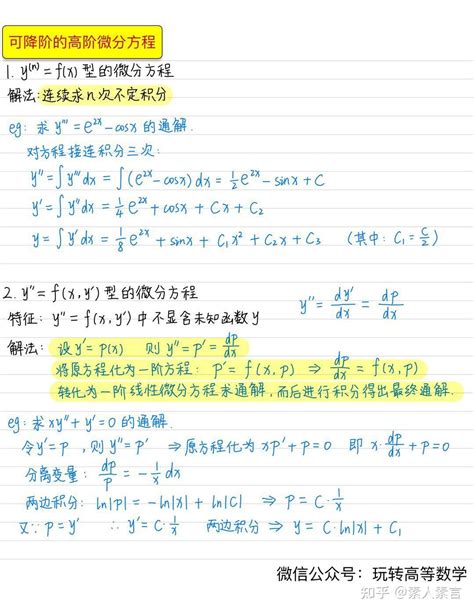 可降阶的高阶微分方程
1. y⁽ⁿ⁾ = f(x) 型的微分方程
解法: 连续求n次不定积分
eg: 求 y''' = e²ˣ - cosx 的通解.
对方程接连积分三次:
y'' = ∫y'''dx = ∫(e²ˣ - cosx)dx = 1/2 e²ˣ - sinx + C
y' = ∫y''dx = 1/4 e²ˣ + cosx + Cx + C₂
y = ∫y'dx = 1/8 e²ˣ + sinx + C₁x² + C₂x + C₃ (其中: C₁ = C/2)
2. y'' = f(x, y') 型的微分方程
y'' = dy'/dx = dp/dx
特征: y'' = f(x, y') 中不显含未知函数y
解法: 设y' = p(x) 则 y'' = p' = dp/dx
将原方程化为一阶方程: p' = f(x, p) ⇒ dp/dx = f(x, p)
转化为一阶线性微分方程求通解, 而后进行积分得出最终通解.
eg: 求xy'' + y' = 0 的通解.
令y' = p, 则 y'' = p' ⇒ 原方程化为 xp' + p = 0 即 x·dp/dx + p = 0
分离变量: dp/p = -1/x dx
两边积分: ln|p| = -ln|x| + ln|C| ⇒ p = C·1/x
又∵ p = y' ∴ y' = C·1/x 两边积分 ⇒ y = C·ln|x| + C₁
微信公众号：玩转高等数学
知乎 @素人素言